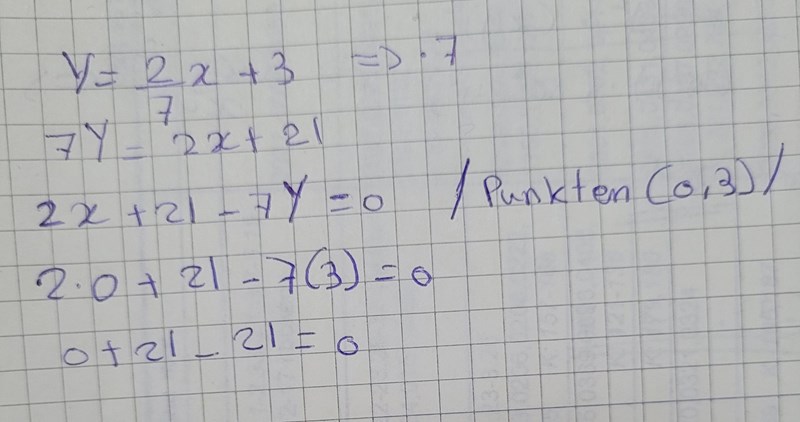 y = 2/7 x + 3 => · 7
7y = 2x + 21
2x + 21 - 7y = 0 / Punkten (0,3) /
2·0 + 21 - 7(3) = 0
0 + 21 - 21 = 0